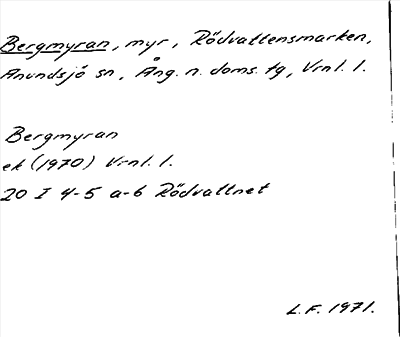 Bergmyran, myr, Rödvattensmarken,
Anundsjö sn, Ång. n. doms. tg, Vrnl. l.
Bergmyran
ek (1970) Vrnl. l.
20 I 4-5 a-b Rödvattnet
L.F. 1971.